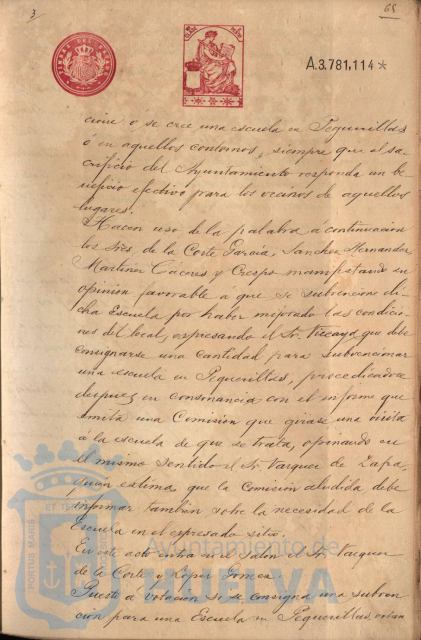 3
65
TIMBRE DEL ESTADO
A.3.781,114*
cione o se cree una escuela en Pequerillas
ó en aquellos contornos, siempre que al sa-
crificio del Ayuntamiento responda un be-
neficio efectivo para los vecinos de aquellos
lugares.
Hacen uso de la palabra á continuacion
los Sres. de la Corte Garcia, Sanchez Hernandez,
Martinez Caceres y Crespo manifestando su
opinion favorable á que se subvencione di-
cha Escuela por haber mejorado las condicio-
nes del local, espresando el Sr. que debe
consignarse una cantidad para subvencionar
una escuela en Pequerillas,
despues en consonancia con el informe que
emita una Comision que girase una visita
á la escuela de que se trata, opinando en
el mismo sentido el Sr. Vazquez de Zafra,
quien estima, que la Comision aludida debe
informar tambien sobre la necesidad de la
Escuela en el espresado sitio.
En este acto entra en el salon el Sr. Vazquez
de la Corte y Lopez Gomez.
Puesto á votacion si se consigna una subven-
cion para una Escuela en Pequerillas, votan
PORTUS MARIS ET TE
Ayuntamiento de
HUELVA